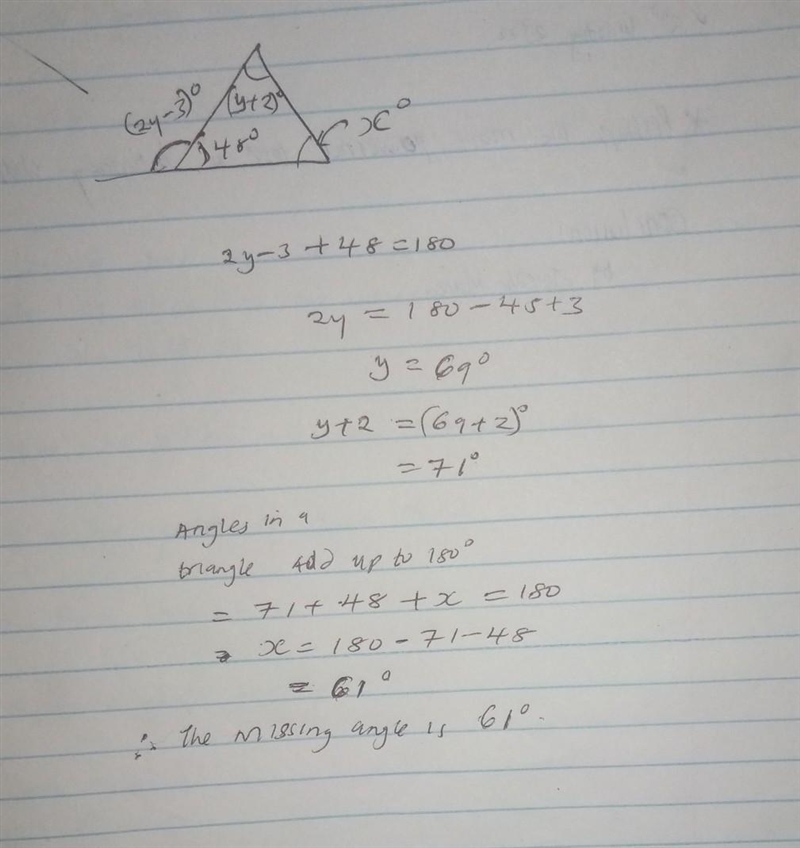 (2y-3)° (y+2)° x°
48°
2y-3 + 48 = 180
2y = 180 - 48 + 3
y = 69°
y+2 = (69+2)°
= 71°
Angles in a
triangle add up to 180°
= 71 + 48 + x = 180
= x = 180 - 71 - 48
= 61°
∴ The missing angle is 61°.